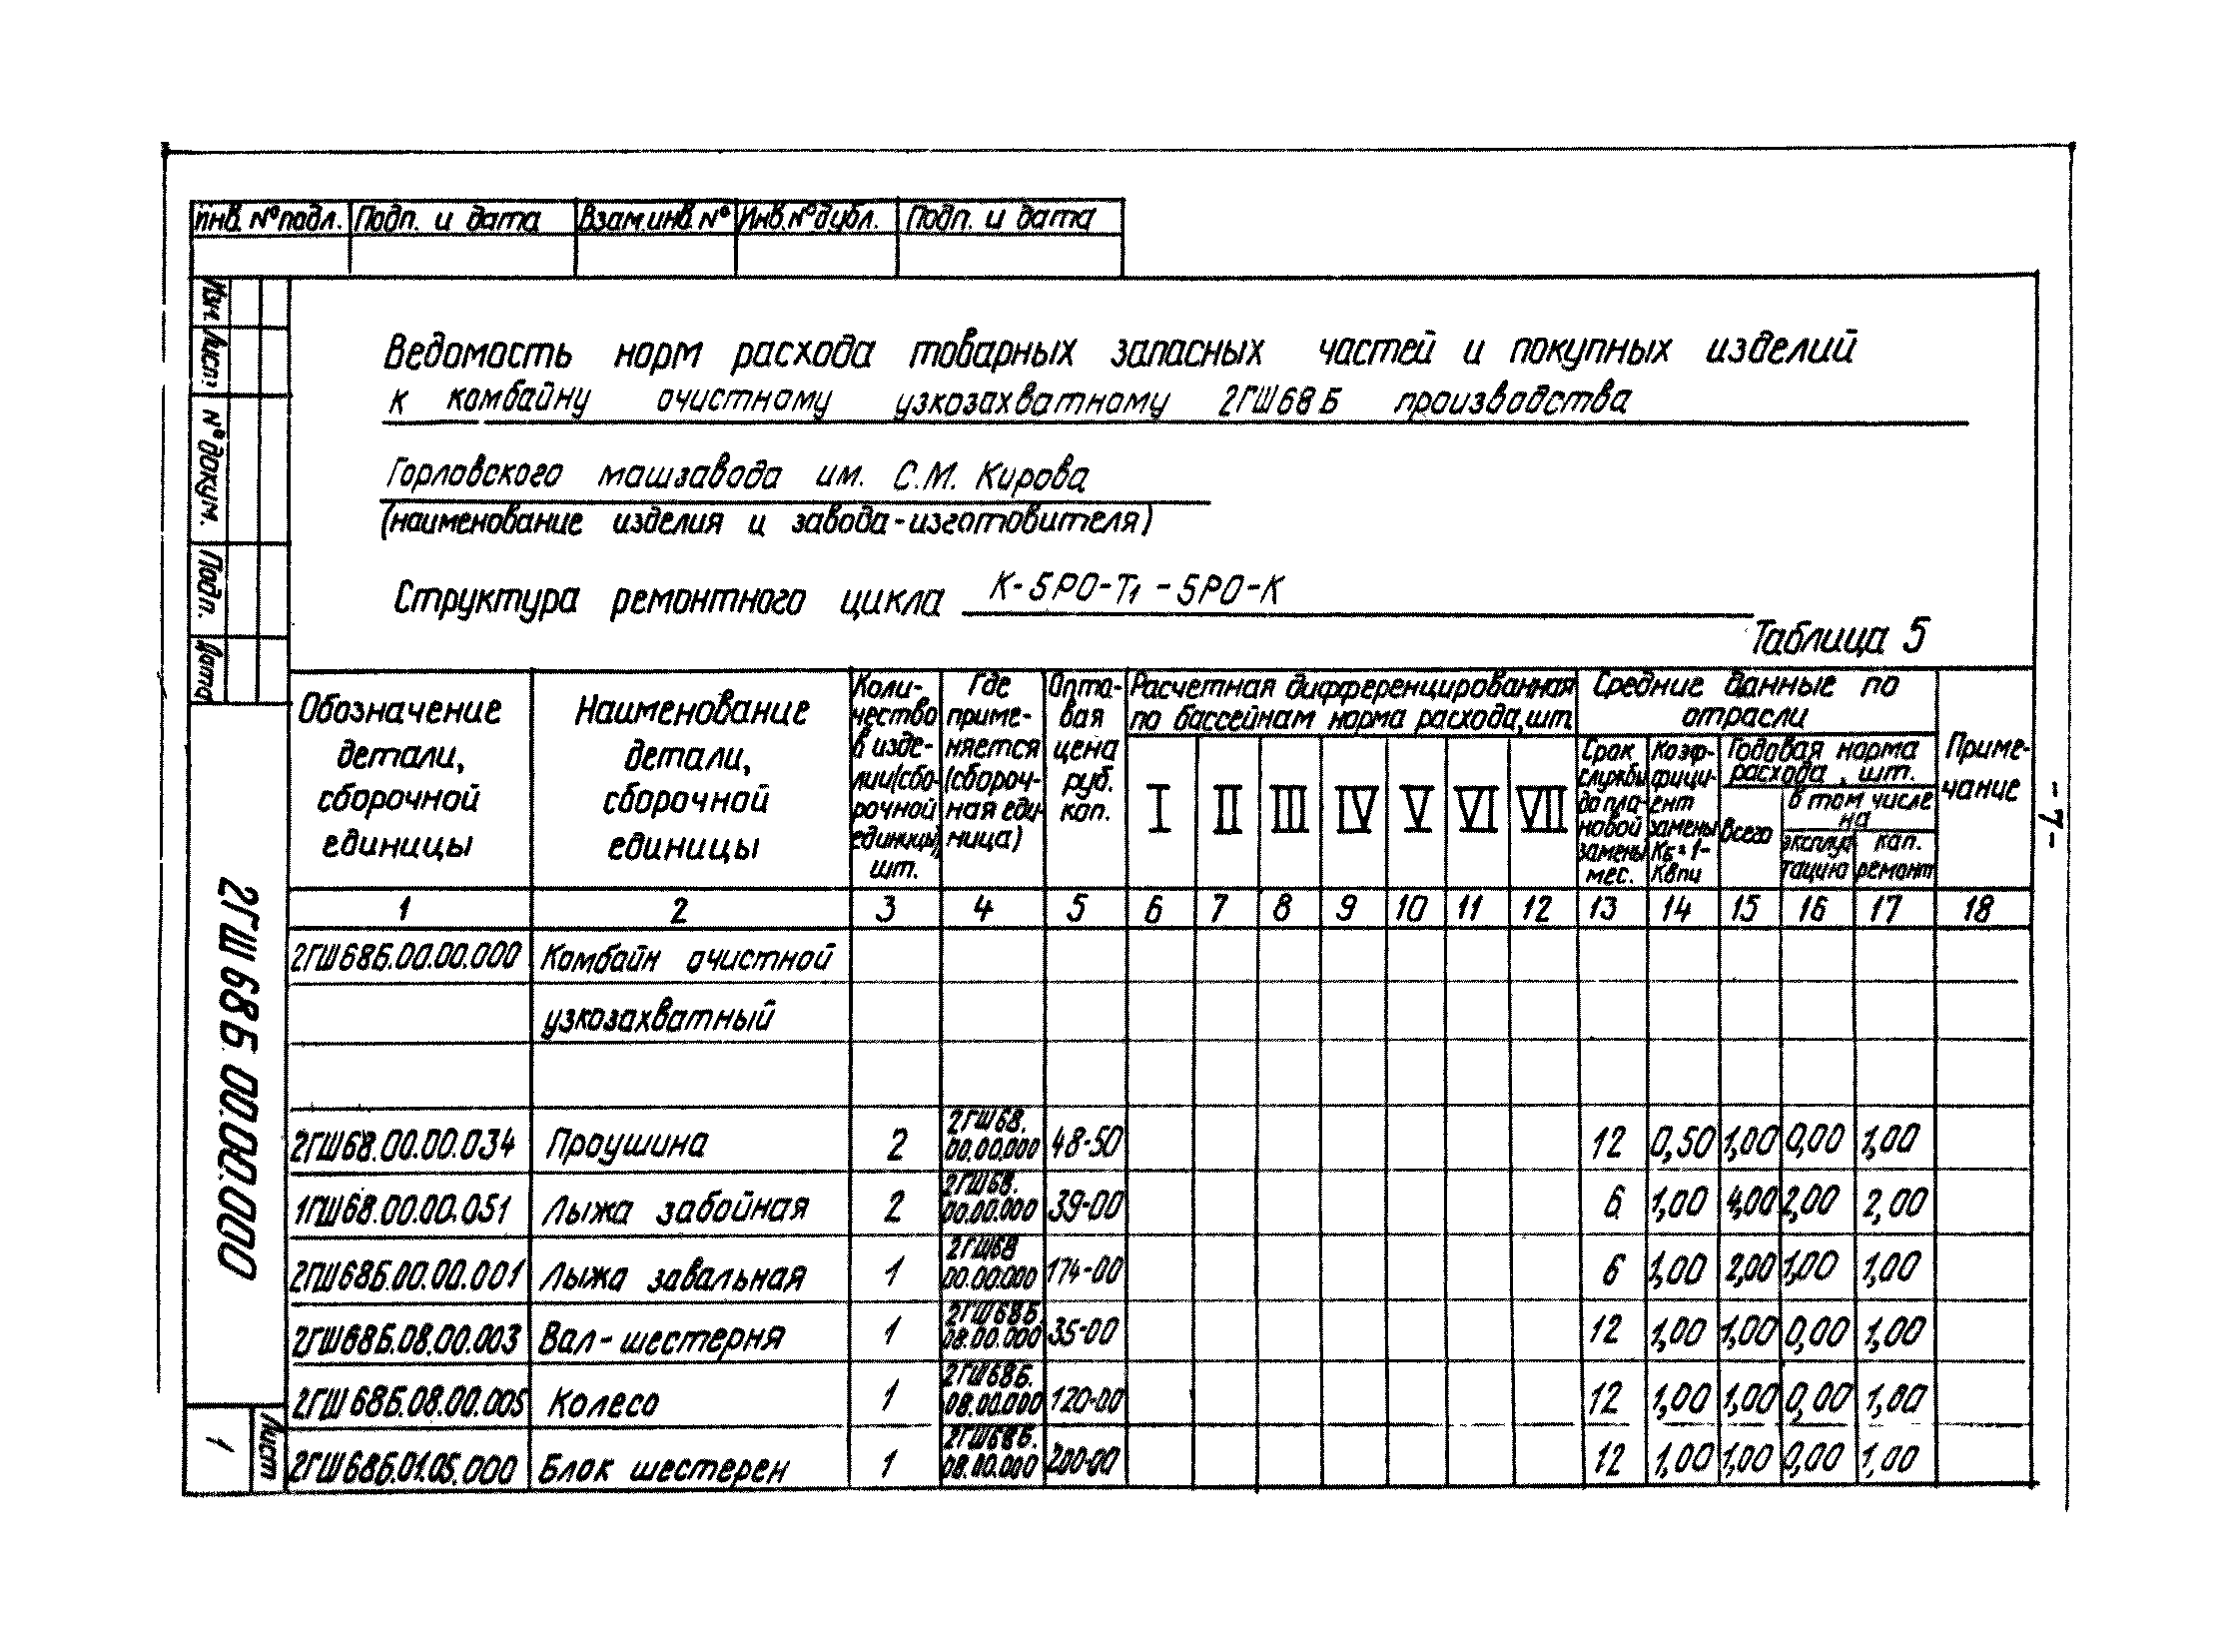 Инв. №подл. Подп. и дата Взам.инв.№ Инв.№дубл. Подп. и дата
Изм. Лист № докум. Подп. Дата
Ведомость норм расхода товарных запасных частей и покупных изделий
к комбайну очистному узкозахватному 2ГШ68Б производства
Горловского машзавода им. С.М. Кирова
(наименование изделия и завода-изготовителя)
Структура ремонтного цикла К-5РО-Т1-5РО-К
Таблица 5
Обозначение
детали,
сборочной
единицы
Наименование
детали,
сборочной
единицы
Коли-
чество
в изде-
лии(сбо-
рочной
единицы),
шт.
Где
приме-
няется
(сбороч-
ная еди-
ница)
Опто-
вая
цена
руб.
коп.
Расчетная дифференцированная
по бассейнам норма расхода, шт.
I II III IV V VI VII
Средние данные по
отрасли
Срок
службы
до пла-
новой
замены
мес.
Коэф-
фици-
ент
замены
Кб=1-
Квпи
Годовая норма
расхода, шт.
всего
в том числе
на
эксплуа-
тацию
кап.
ремонт
Приме-
чание
1 2 3 4 5 6 7 8 9 10 11 12 13 14 15 16 17 18
2ГШ68Б.00.00.000 Комбайн очистной
узкозахватный
2ГШ68.00.00.034 Проушина 2 2ГШ68. 00.00.000 48-50 12 0,50 1,00 0,00 1,00
1ГШ68.00.00.051 Лыжа забойная 2 2ГШ68. 00.00.000 39-00 6 1,00 4,00 2,00 2,00
2ГШ68Б.00.00.001 Лыжа завальная 1 2ГШ68 00.00.000 174-00 6 1,00 2,00 1,00 1,00
2ГШ68Б.08.00.003 Вал-шестерня 1 2ГШ68Б. 08.00.000 35-00 12 1,00 1,00 0,00 1,00
2ГШ68Б.08.00.005 Колесо 1 2ГШ68Б. 08.00.000 120-00 12 1,00 1,00 0,00 1,00
2ГШ68Б.01.05.000 Блок шестерен 1 2ГШ68Б. 08.00.000 200-00 12 1,00 1,00 0,00 1,00
2ГШ68Б 00.00.000
Лист
1
-7-